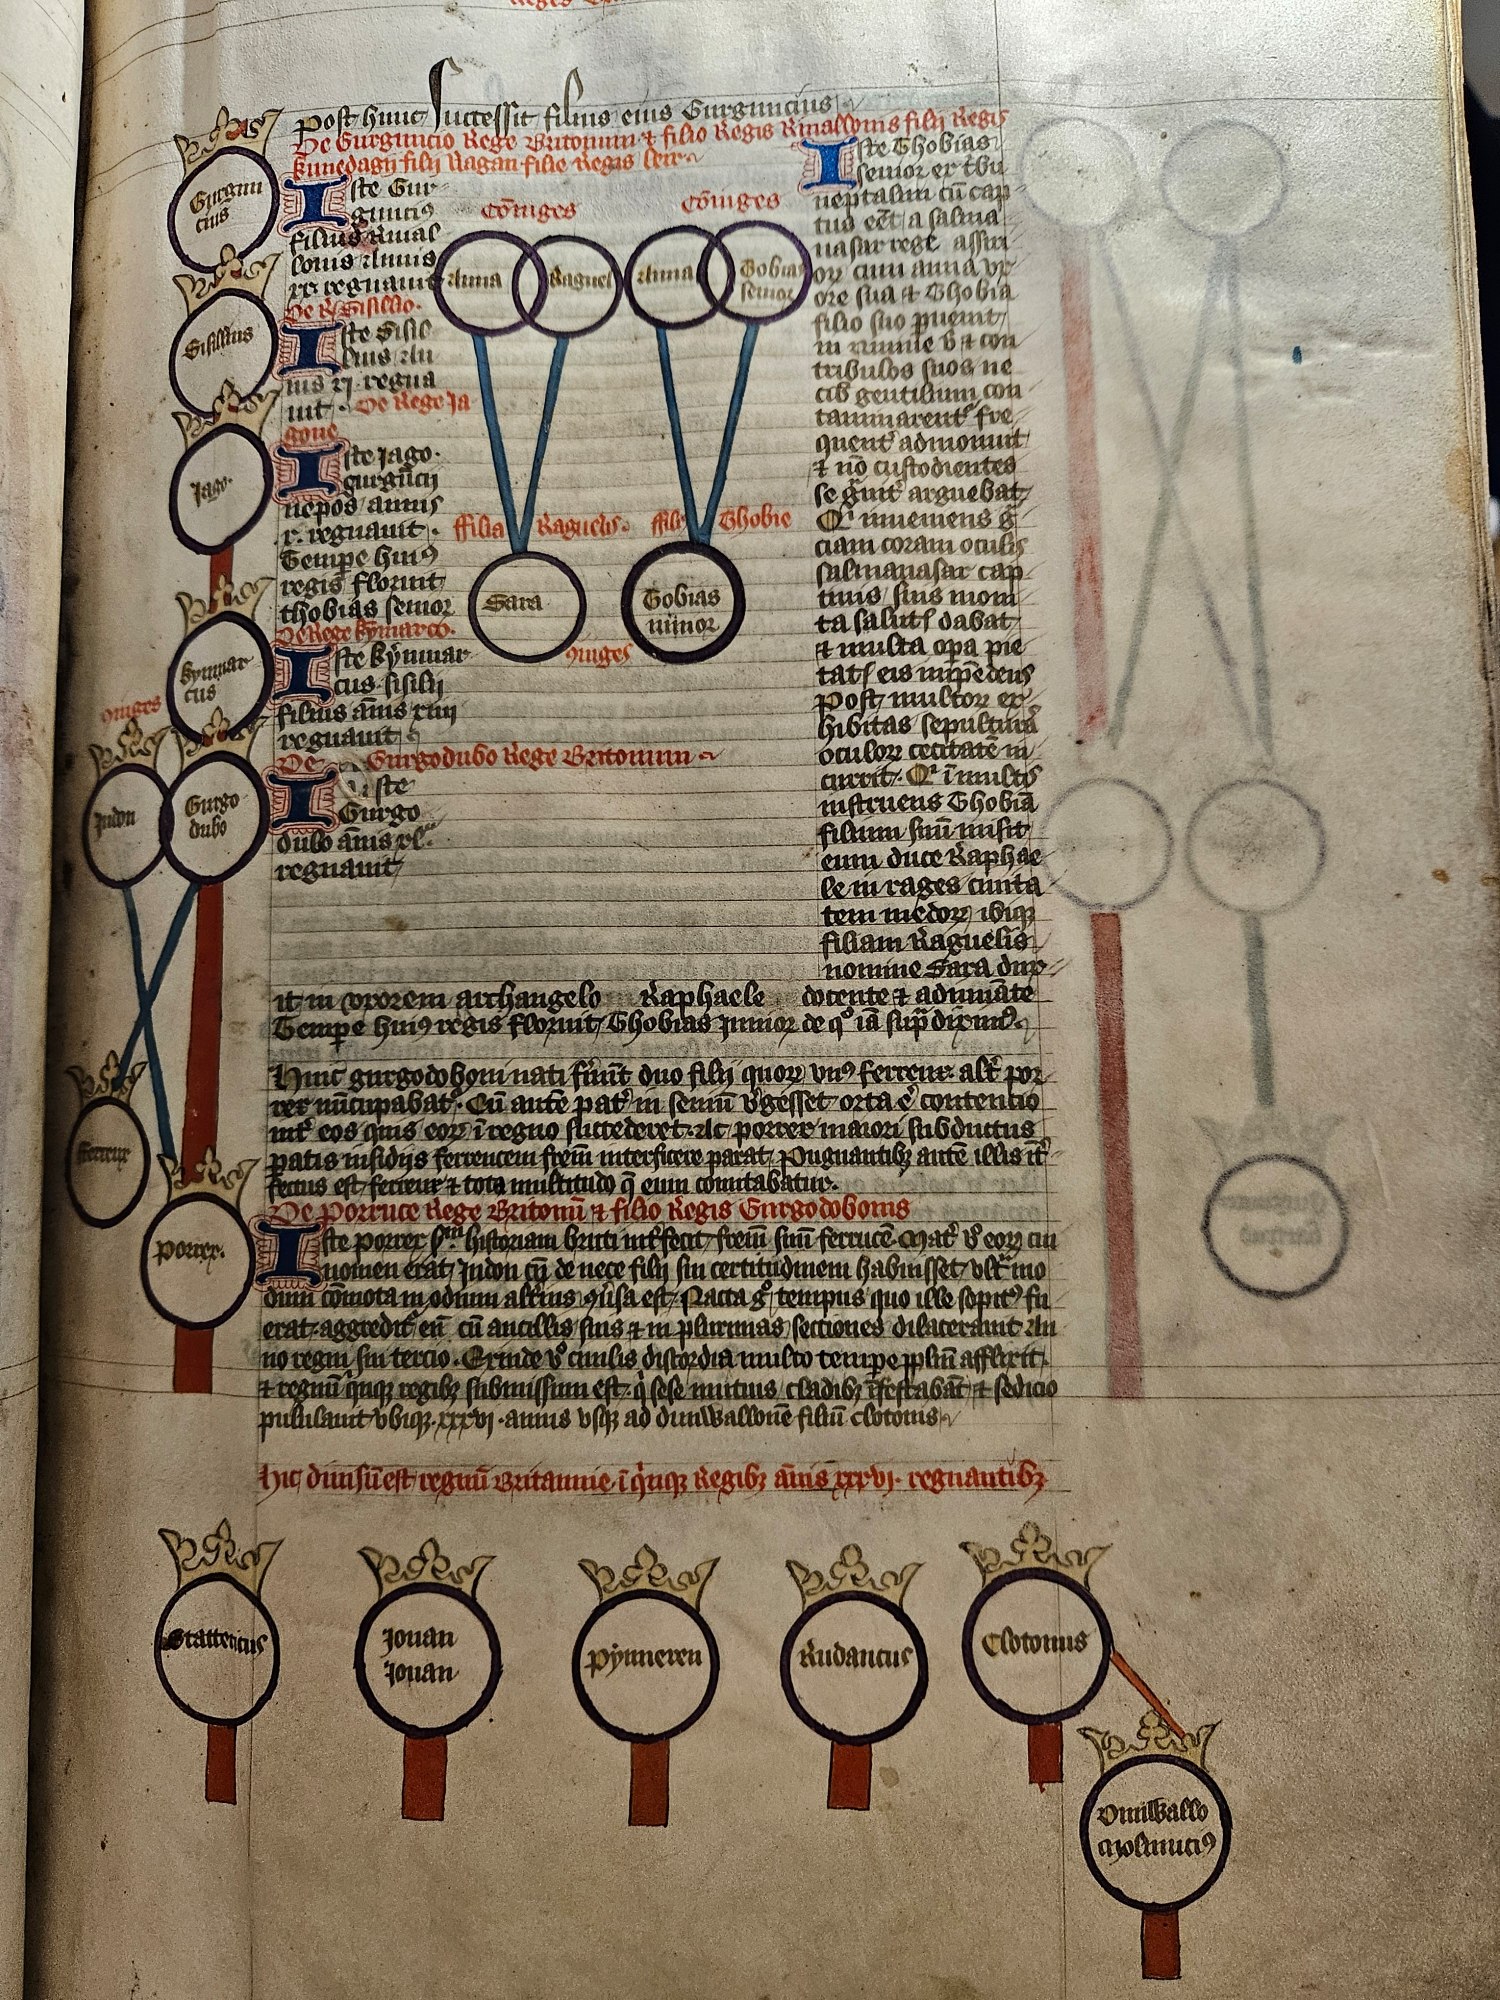 Post hunc successit filius eius Gurguncius
De Gurguncio Rege Britonum & filio Regis Rinallonis filii Regis
kunedagii filii Ragan filie Regis leir
Gurgun
cius
Iste Gur
gunci9
filius Riual
lonis Annis
xx regnauit
De R Sisillio.
Sisillius
Iste Sisil
lius An
nis xi regna
uit. De Rege Ja
gone
Jago.
Iste Jago.
gurgucii
nepos annis
regnauit.
Tempe hui9
regis floruit
thobias senior
De Rege kymarco.
kymar
cus
Iste kymar
cus sisilii
filius anis xiiii
regnauit
De Gurgodubo Rege Britonum
9iuges
Judon
Gurgo
dubo
Iste
Gurgo
dubo anis xl
regnauit
coniuges
coniuges
Anna
Raguel
Anna
Tobias
senior
ffilia Raguelis.
Thobie
Sara
Tobias
iunior
9iuges
Iste Thobias
senior ex tbu
neptalim cu cap
tus eet a salma
nasar rege assiri
or cum anna vx
ore sua & Thobia
filio suo puenit
in niniue & con
tribulos suos ne
cib gentilium con
taminarent fre
quent admonuit
& no custodientes
se arguebat
Qi inueniens g
ciam coram oculis
salmanasar cap
tiuis suis moni
ta salut dabat
& multa opa pie
tat eis impedens
Post multor ex
hibitas sepultura
oculor cecitate in
currit. Qi i multis
instruens Thobia
filium suu misit
eum duce Raphae
le in rages ciuita
tem medor ibiq
filiam Raguelis
nomine Sara dux
it in vxorem archangelo Raphaele docente & adiuuate
Tempe hui9 regis floruit Thobias Junior de qo ia sup diximus.
Huic gurgodoboni nati fuut duo filii quor vn9 ferreux alt por
rex nucupabat. Cu aute pat in seniu vgesset orta e contencio
int eos quis eor i regno succederet. Ac porrex maiori subductus
patis insidiis ferreucem frem interficere parat. Pugnantib aute illis it
fectus est ferreux & tota multitudo q eum comitabatur.
De Porruce Rege Britonu & filio Regis Gurgodobonis
ferreux
porrex.
Iste porrex historiam bruti intfecit frem suu ferruce Mat eor cui
nomen erat Judon cu de nece filii sui certitudinem habuisset vlt mo
dum comota in odium alterius est. Nacta go tempus quo ille sopit9 fu
erat aggredit eu cu ancillis suis & in plurimas sectiones dilacerauit An
no regni sui tercio. Exinde ciuilis discordia multo tempe pplm afflixit.
& regnu quiq regib submissum est. q sese mutuis cladib ifestabat & sedicio
pullulauit vbiq xxxvi annis vsq ad dunwallone filiu clotonis
Hic diuisu est regnu Britannie i quiq Regib anis xxxvi regnantib
Statterius
Jouan
Jouan
Pynneren
Rudancus
Clotonus
Dunwallo
Molmuci9